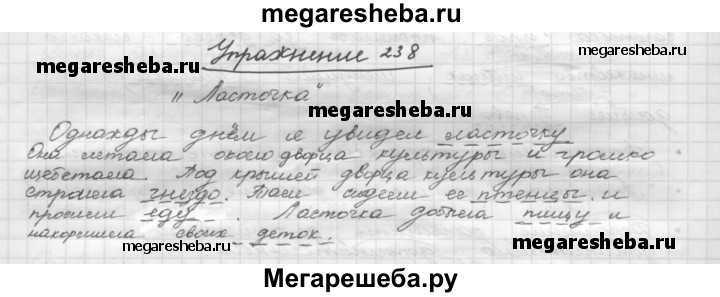 megaresheba.ru
Упражнение 238
megaresheba.ru megaresheba.ru
„Ласточка"
megaresheba.ru
Однажды днём я увидел ласточку
Она летала около дворца культуры и громко
щебетала. Под крышей дворца культуры она
строила гнездо. Там сидели ее птенцы и
просили еду. Ласточка добыла пищу и
накормила своих деток.
megaresheba.ru megaresheba.ru
Мегарешеба.ру